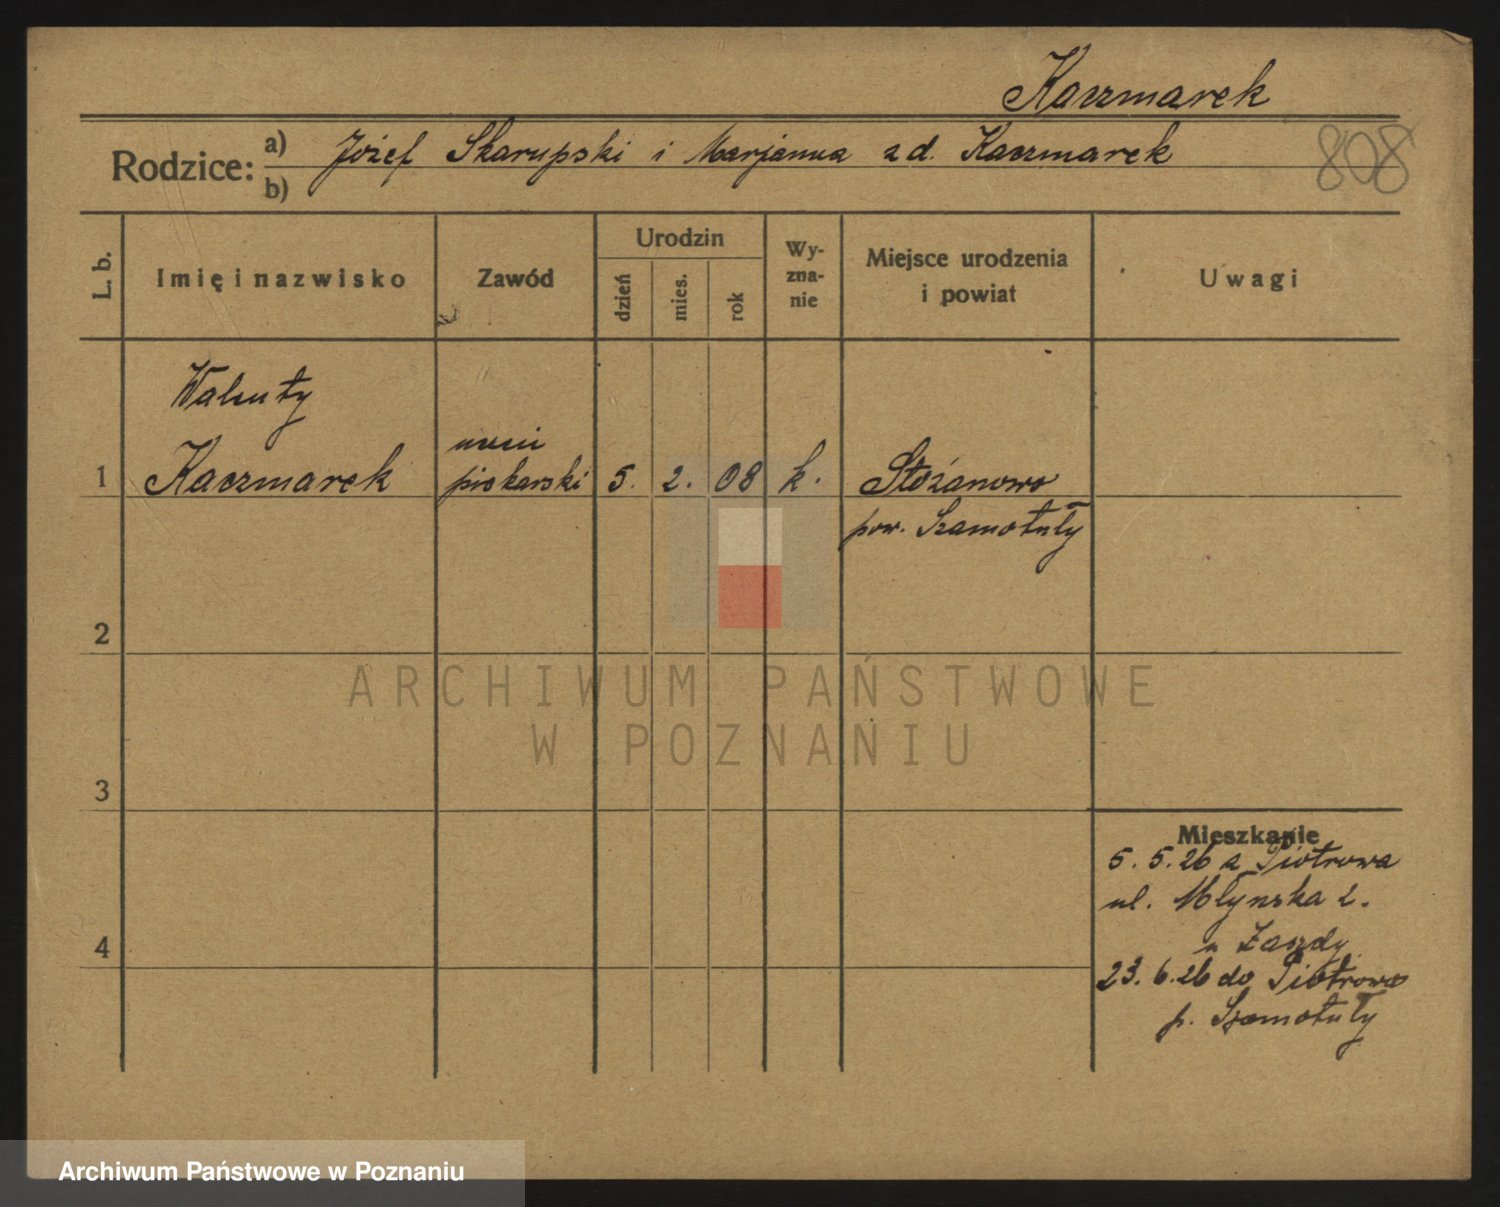 Kaczmarek
Rodzice: a) Józef Skarupski i Marjanna z d. Kaczmarek
b)
808
L. b.
Imię i nazwisko
Zawód
Urodzin
dzień
mies.
rok
Wy-
zna-
nie
Miejsce urodzenia
i powiat
Uwagi
Walenty
uczeń
1 Kaczmarek piekarski 5. 2. 08 k.
pow. Szamotuły
2
3
4
Mieszkanie
5. 5. 26 z Piotrowa
ul. Młynska 2.
u
23. 6. 26 do Piotrowa
p. Szamotuły
ARCHIWUM PAŃSTWOWE
W POZNANIU
Archiwum Państwowe w Poznaniu